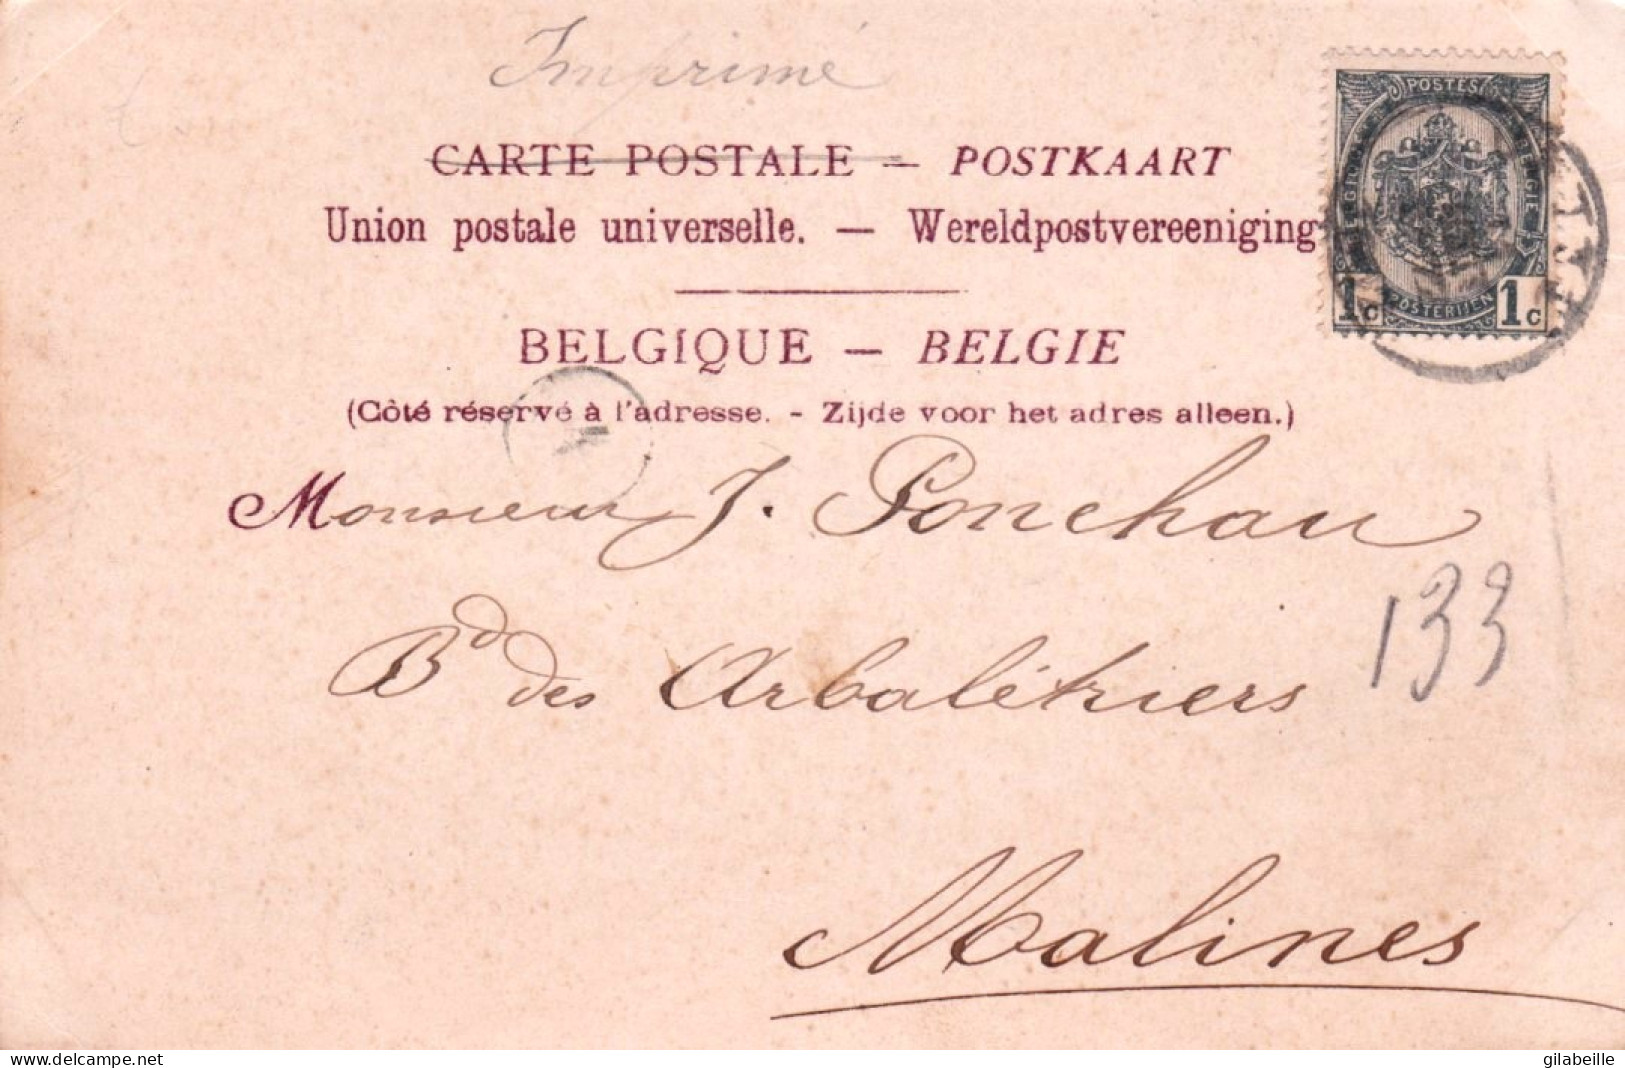 Imprimé
CARTE POSTALE — POSTKAART
Union postale universelle. — Wereldpostvereeniging
BELGIQUE — BELGIE
(Côté réservé à l'adresse. - Zijde voor het adres alleen.)
POSTES
BELGIQUE BELGIE
POSTERIJEN
1c 1c
Monsieur J. Ponchau
Bd des Arbalétriers
133
Malines
delcampe.net
gilabeille